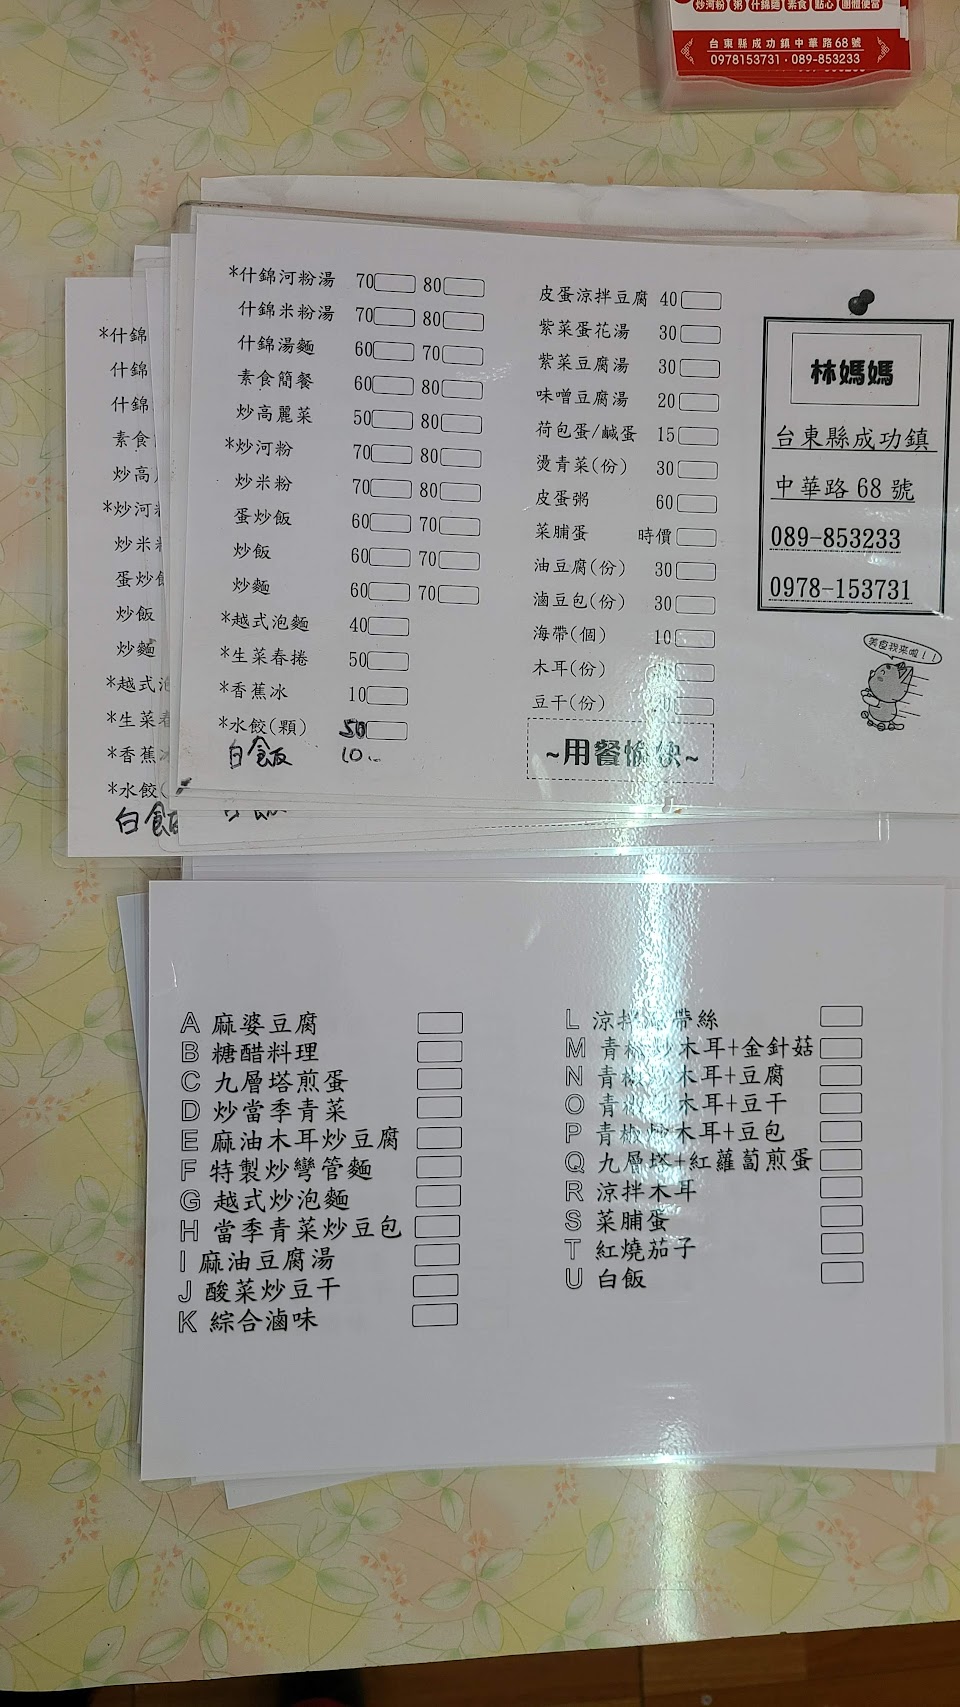 炒河粉 粥 什錦麵 素食 點心 團體便當
台東縣成功鎮中華路68號
0978153731·089-853233
*什錦河粉湯 70 80
什錦米粉湯 70 80
什錦湯麵 60 70
素食簡餐 60 80
炒高麗菜 50 80
*炒河粉 70 80
炒米粉 70 80
蛋炒飯 60 70
炒飯 60 70
炒麵 60 70
*越式泡麵 40
*生菜春捲 50
*香蕉冰 10
*水餃(顆) 50
白飯 10
皮蛋涼拌豆腐 40
紫菜蛋花湯 30
紫菜豆腐湯 30
味噌豆腐湯 20
荷包蛋/鹹蛋 15
燙青菜(份) 30
皮蛋粥 60
菜脯蛋 時價
油豆腐(份) 30
滷豆包(份) 30
海帶(個) 10
木耳(份)
豆干(份)
~用餐愉快~
林媽媽
台東縣成功鎮
中華路68號
089-853233
0978-153731
美食我來啦!!
*什錦
什錦
什錦
素食
炒高
*炒河
炒米
蛋炒
炒飯
炒麵
*越式
*生菜
*香蕉
*水餃(
白飯
A 麻婆豆腐
B 糖醋料理
C 九層塔煎蛋
D 炒當季青菜
E 麻油木耳炒豆腐
F 特製炒彎管麵
G 越式炒泡麵
H 當季青菜炒豆包
I 麻油豆腐湯
J 酸菜炒豆干
K 綜合滷味
L 涼拌海帶絲
M 青椒炒木耳+金針菇
N 青椒炒木耳+豆腐
O 青椒炒木耳+豆干
P 青椒炒木耳+豆包
Q 九層塔+紅蘿蔔煎蛋
R 涼拌木耳
S 菜脯蛋
T 紅燒茄子
U 白飯